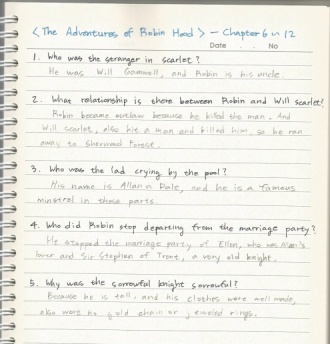 <The Adventures of Robin Hood> - Chapter 6 ~ 12
Date . . No
1. Who was the stranger in scarlet?
He was Will Gamwell, and Robin is his uncle.
2. What relationship is there between Robin and Will scarlet?
Robin became outlaw because he killed the man. And
Will scarlet, also hit a man and killed him. so he ran
away to sherwood Forest.
3. Who was the lad crying by the pool?
His name is Allan a Dale, and he is a famous
minstrel in those parts.
4. Who did Robin stop departing from the marriage party?
He stopped the marriage party of Ellen, who was Alan's
lover and Sir Stephen of Trent, a very old knight.
5. Why was the sorrowful knight sorrowful?
Because he is tall, and his clothes were well made,
also wore no gold chain or jeweled rings.